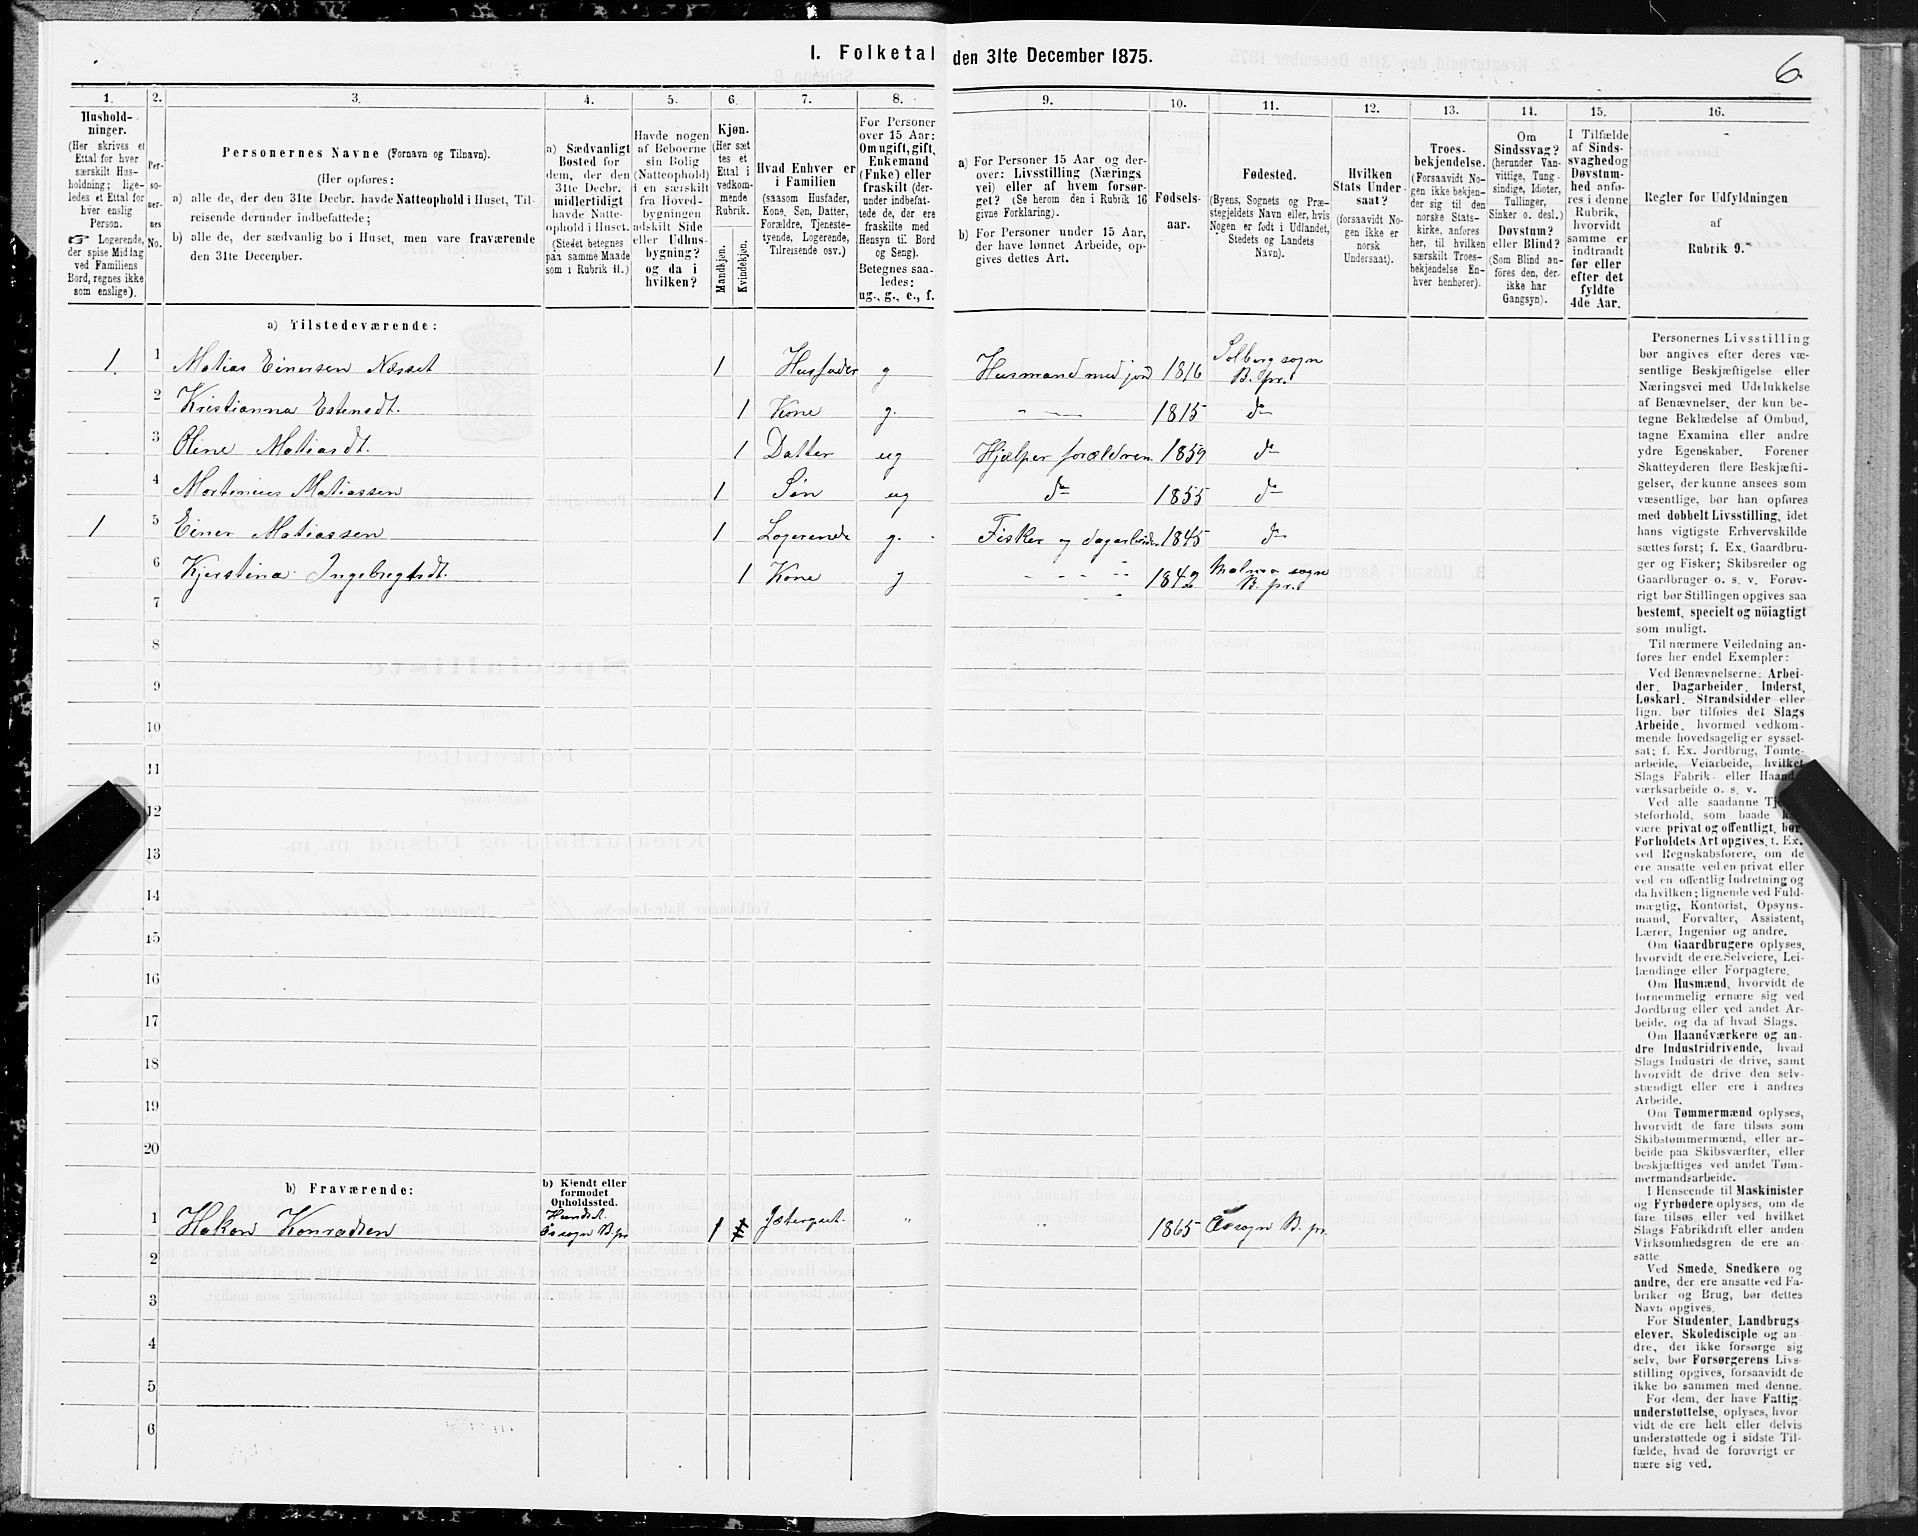 I. Folketal den 31te December 1875.
6.
1. 2. 3. 4. 5. 6. 7. 8. 9. 10. 11. 12. 13. 14. 15. 16.
Hushold-
ninger.
(Her skrives et
Ettal for hver
særskilt Hus-
holdning; lige-
ledes et Ettal for
hver enslig
Person.
☞ Logerende,
der spise Middag
ved Familiens
Bord, regnes ikke
som enslige).
Per-
so-
ner-
nes
No.
Personernes Navne (Fornavn og Tilnavn).
(Her opføres:
a) alle de, der den 31te Decbr. havde Natteophold i Huset, Til-
reisende derunder indbefattede;
b) alle de, der sædvanlig bo i Huset, men vare fraværende
den 31te December.
a) Sædvanligt
Bosted for
dem, der den
31te Decbr.
midlertidigt
havde Natte-
ophold i Huset.
(Stedet betegnes
paa samme Maade
som i Rubrik 11.)
Havde nogen
af Beboerne
sin Bolig
(Natteophold)
i en særskilt
fra Hoved-
bygningen
adskilt Side
eller Udhus-
bygning?
og da i
hvilken?
Kjøn.
(Her sæt
tes et
Ettal i
vedkom-
mende
Rubrik.
Mandkjøn.
Kvindekjøn.
Hvad Enhver er
i Familien
(saasom Husfader,
Kone, Søn, Datter,
Forældre, Tjeneste-
tyende, Logerende,
Tilreisende osv.)
For Personer
over 15 Aar:
Om ugift, gift,
Enkemand
(Enke) eller
fraskilt (der-
under indbefat-
tede de, der ere
fraskilte med
Hensyn til Bord
og Seng).
Betegnes saa-
ledes:
ug., g., e., f.
a) For Personer 15 Aar og der-
over: Livsstilling (Nærings
vei) eller af hvem forsør-
get? (Se herom den i Rubrik 16
givne Forklaring).
b) For Personer under 15 Aar,
der have lønnet Arbeide, op-
gives dettes Art.
Fødsels-
aar.
Fødested.
(Byens, Sognets og Præ-
stegjeldets Navn eller, hvis
Nogen er født i Udlandet,
Stedets og Landets
Navn).
Hvilken
Stats Under-
saat?
(forsaavidt No-
gen ikke er
norsk
Undersaat).
Troes-
bekjendelse.
(Forsaavidt No-
gen ikke bekjen-
der sig til den
norske Stats-
kirke, anføres
her, til hvilken
særskilt Troes-
bekjendelse En-
hver henhører).
Om
Sindssvag?
(herunder Van-
vittige, Tung-
sindige, Idioter,
Tullinger,
Sinker o. desl.)
Døvstum?
eller Blind?
(Som Blind an-
føres den, der-
ikke har
Gangsyn).
I Tilfælde
af Sinds-
svaghed og
Døvstum-
hed anfø-
res i denne
Rubrik,
hvorvidt
samme er
indtraadt
før eller
efter det
fyldte
4de Aar.
Regler for Udfyldningen
af
Rubrik 9.
a) Tilstedeværende:
1. 1 Matias Einersen Næsset 1 Husfader g Husmand med jord 1816 Solberg sogn B. pr.
2 Kristianna Estensdt. 1 Kone g. 1815 do
3 Oline Matiasdt. 1 Datter ug Hjælper forældren 1859 do
4 Mortenius Matiassen 1 Søn ug do 1855 do
1 5 Einer Matiassen 1 Logerende g. Fisker og dagarbeider 1845 do
6 Kjerstina Ingebregtsdt. 1 Kone g 1842 Malmo sogn B. pr.
7
8
9
10
11
12
13
14
15
16
17
18
19
20
b) Fraværende:
b) Kjendt eller
formodet
Opholdssted.
1 Hakon Konradsen Øs sogn B. pr 1 " " 1865 Øs sogn B. pr.
2
3
4
5
6
Personernes Livsstilling
bør angives efter deres væ-
sentlige Beskjæftigelse eller
Næringsvei med Udelukkelse
af Benævnelser, der kun be-
tegne Beklædelse af Ombud,
tagne Examina eller andre
ydre Egenskaber. Forener
Skatteyderen flere Beskjæfti-
gelser, der kunne ansees som
væsentlige, bør han opføres
med dobbelt Livsstilling, idet
hans vigtigste Erhvervskilde
sættes først; f. Ex. Gaardbru-
ger og Fisker; Skibsreder og
Gaardbruger o. s. v. Forøv-
rigt bør Stillingen opgives saa
bestemt, specielt og nöiagtigt
som muligt.
Til nærmere Veiledning an-
føres her endel Exempler:
Ved Benævnelserne: Arbei-
der, Dagarbeider, Inderst,
Løskarl, Strandsidder eller
lign. bør tilføies det Slags
Arbeide, hvormed vedkom-
mende hovedsagelig er syssel-
sat; f. Ex. Jordbrug, Tomte-
arbeide, Veiarbeide, hvilket
Slags Fabrik- eller Haand-
værksarbeide o. s. v.
Ved alle saadanne
steforhold, som baade
være privat og offentligt, bør
Forholdets Art opgives, t. Ex.
ved Regnskabsførere, om de
ere ansatte ved en privat eller
ved en offentlig Indretning og
da hvilken; lignende ved Fuld-
mægtig, Kontorist, Opsyns-
mand, Forvalter, Assistent,
Lærer, Ingeniør og andre.
Om Gaardbrugere oplyses,
hvorvidt de ere Selveiere, Lei-
lændinge eller Forpagtere.
Om Husmænd, hvorvidt de
fornemmelig ernære sig ved
Jordbrug eller ved andet Ar-
beide, og da af hvad Slags.
Om Haandværkere og an-
dre Industridrivende, hvad
Slags Industri de drive, samt
hvorvidt de drive den selv-
stændigt eller ere i andres
Arbeide.
Om Tømmermænd oplyses,
hvorvidt de fare tilsøs som
Skibstømmermænd, eller ar-
beide paa Skibsværfter, eller
beskjæftiges ved andet Tøm-
mermandsarbeide.
I Henseende til Maskinister
og Fyrbødere oplyses, om de
fare tilsøs eller ved hvilket
Slags Fabrikdrift eller anden
Virksomhedsgren de ere an-
satte
Ved Smede, Snedkere og
andre, der ere ansatte ved Fa-
briker og Brug, bør dettes
Navn opgives.
For Studenter, Landbrugs-
elever, Skoledisciple og an-
dre, der ikke forsørge sig
selv, bør Forsørgerens Livs-
stilling opgives, forsaavidt de
ikke bo sammen med denne.
For dem, der have Fattig-
understøttelse, oplyses, hvor-
vidt de ere helt eller delvis
understøttede og i sidste Til-
fælde, hvad de forøvrigt er
nære sig ved.